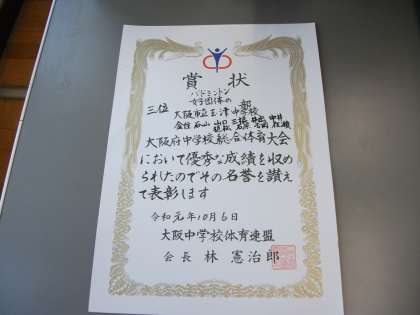 賞状
バドミントン
女子団体の部
三位
大阪市立玉津中学校
大阪府中学校総合体育大会
において優秀な成績を収め
られたのでその名誉を讃え
て表彰します
令和元年10月6日
大阪中学校体育連盟
会長 林 憲治郎